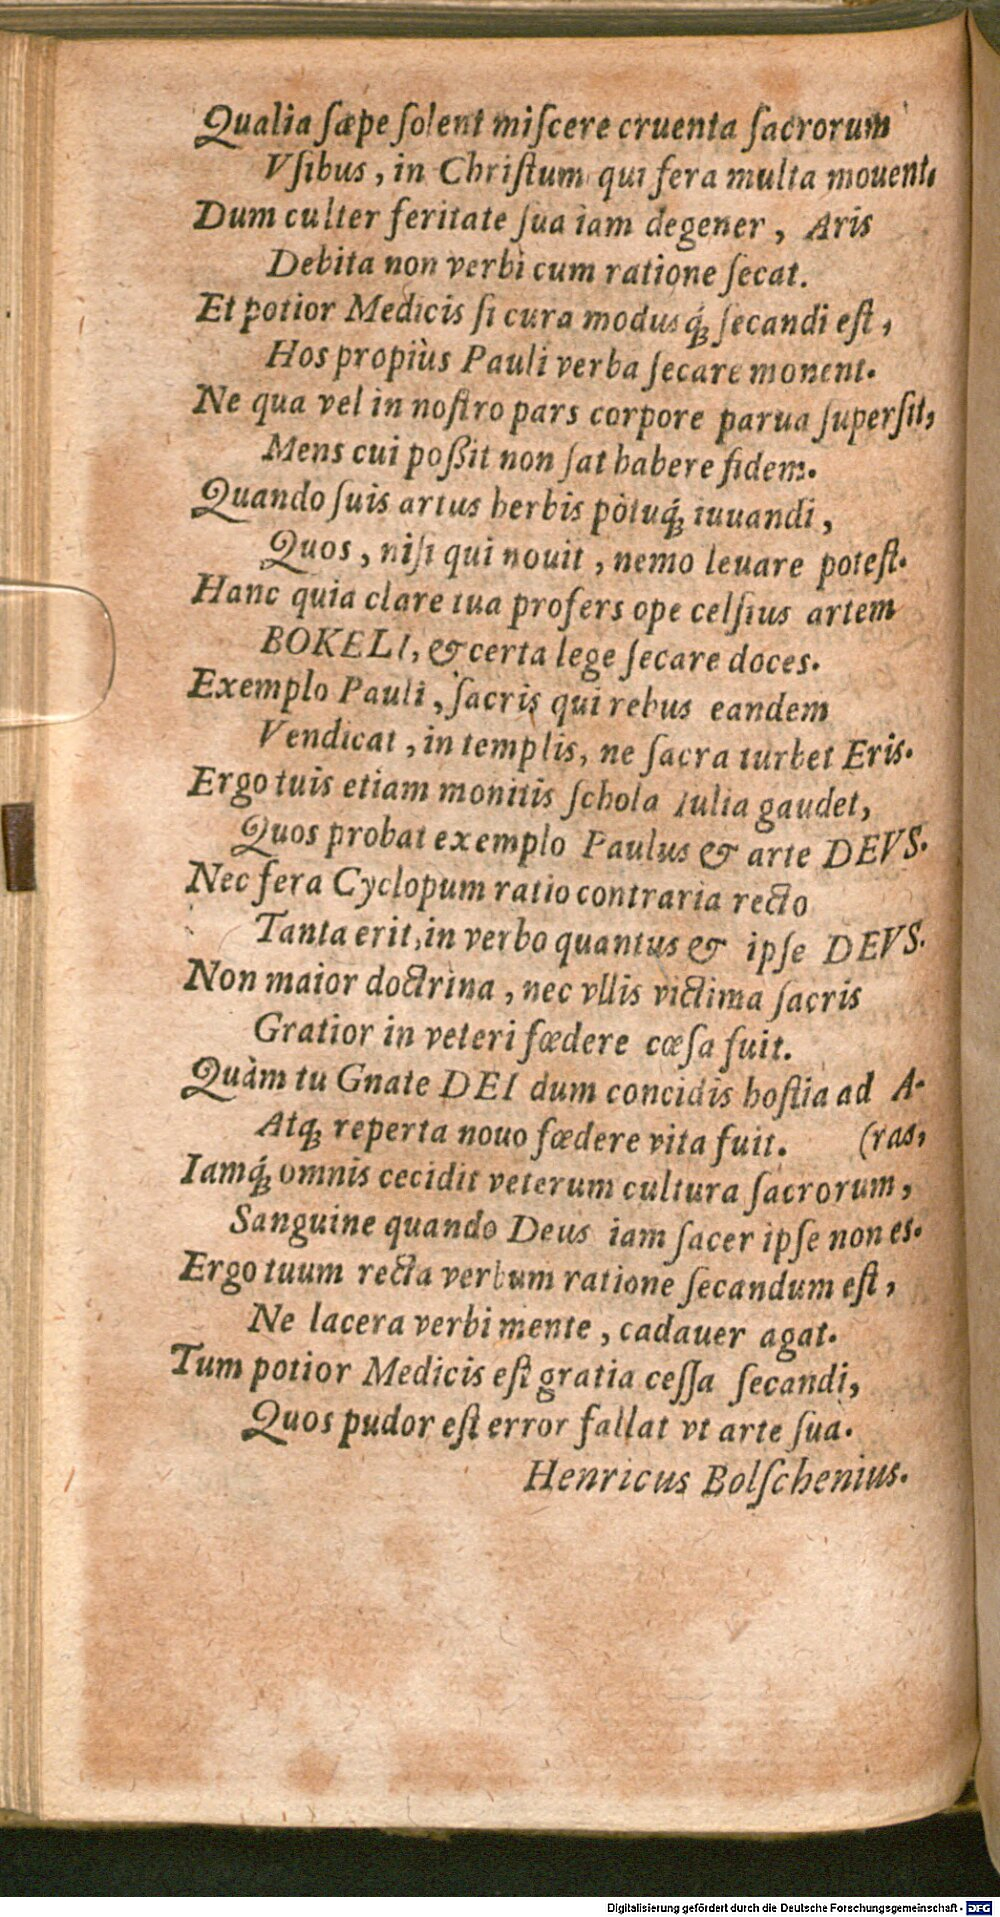 Qualia ſæpe ſolent miſcere cruenta ſacrorum
Vſibus, in Chriſtum qui fera multa mouent.
Dum culter feritate ſua iam degener, Aris
Debita non verbi cum ratione ſecat.
Et potior Medicis ſi cura modusq́; ſecandi eſt,
Hos propiùs Pauli verba ſecare monent.
Ne qua vel in noſtro pars corpore parua ſuperſit,
Mens cui poßit non ſat habere fidem.
Quando ſuis artus herbis pòtuq́; iuuandi,
Quos, niſi qui nouit, nemo leuare poteſt.
Hanc quia clare tua profers ope celſius artem
BOKELI, & certa lege ſecare doces.
Exemplo Pauli, ſacris qui rebus eandem
Vendicat, in templis, ne ſacra turbet Eris.
Ergo tuis etiam monitis ſchola Iulia gaudet,
Quos probat exemplo Paulus & arte DEVS.
Nec fera Cyclopum ratio contraria recto
Tanta erit, in verbo quantus & ipſe DEVS.
Non maior doctrina, nec vllis victima ſacris
Gratior in veteri fœdere cœſa fuit.
Quàm tu Gnate DEI dum concidis hoſtia ad A-
Atq; reperta nouo fœdere vita fuit. (ras,
Iamq́; omnis cecidit veterum cultura ſacrorum,
Sanguine quando Deus iam ſacer ipſe non es.
Ergo tuum recta verbum ratione ſecandum eſt,
Ne lacera verbi mente, cadauer agat.
Tum potior Medicis eſt gratia ceſſa ſecandi,
Quos pudor eſt error fallat vt arte ſua.
Henricus Bolſchenius.
Digitalisierung gefördert durch die Deutsche Forschungsgemeinschaft - DFG